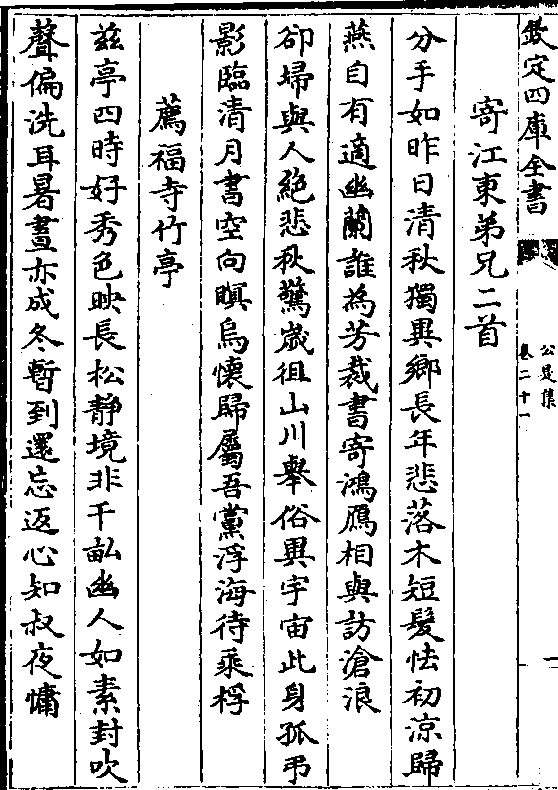 欽定四庫全書
公是集
卷二十一
寄江東弟兄二首
分手如昨日清秋獨異鄉長年悲落木短髮怯初涼歸
燕自有適幽蘭誰為芳裁書寄鴻鴈相與訪滄浪
卻埽與人絶悲秋驚歲徂山川舉俗異宇宙此身孤弔
影臨清月書空向瞑烏懷歸屬吾黨浮海待乘桴
薦福寺竹亭
茲亭四時好秀色映長松静境非千畝幽人如素封吹
聲偏洗耳暑晝亦成冬暫到還忘返心知叔夜慵